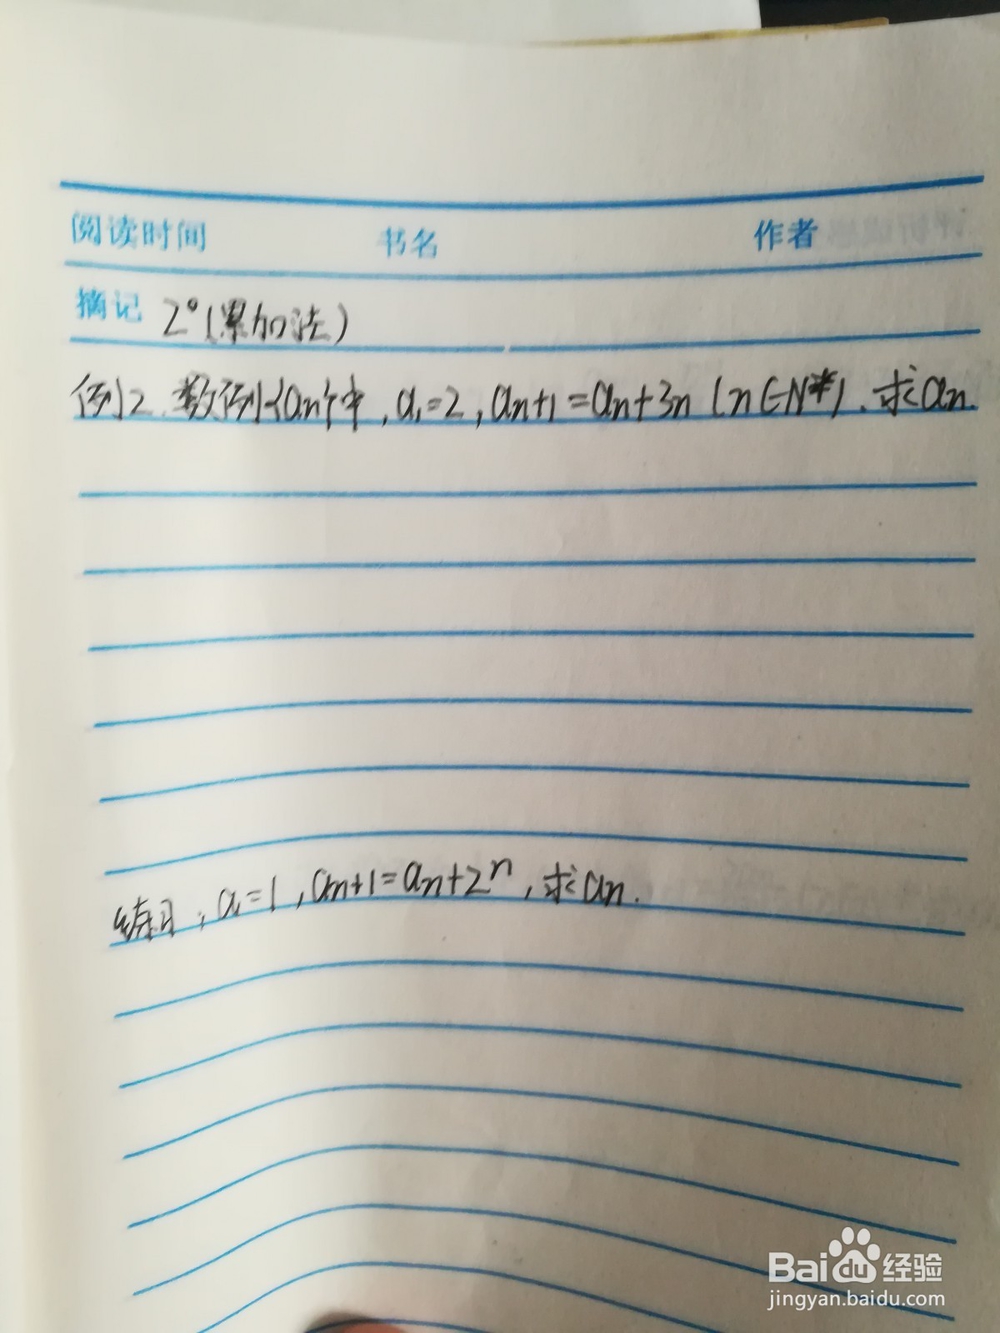 阅读时间 书名 作者
摘记 2°(累加法)
例2.数列{an}中,a₁=2,an+1=an+3n (n∈N*).求an.
练习:a₁=1,an+1=an+2ⁿ,求an.
Baidu 经验
jingyan.baidu.com